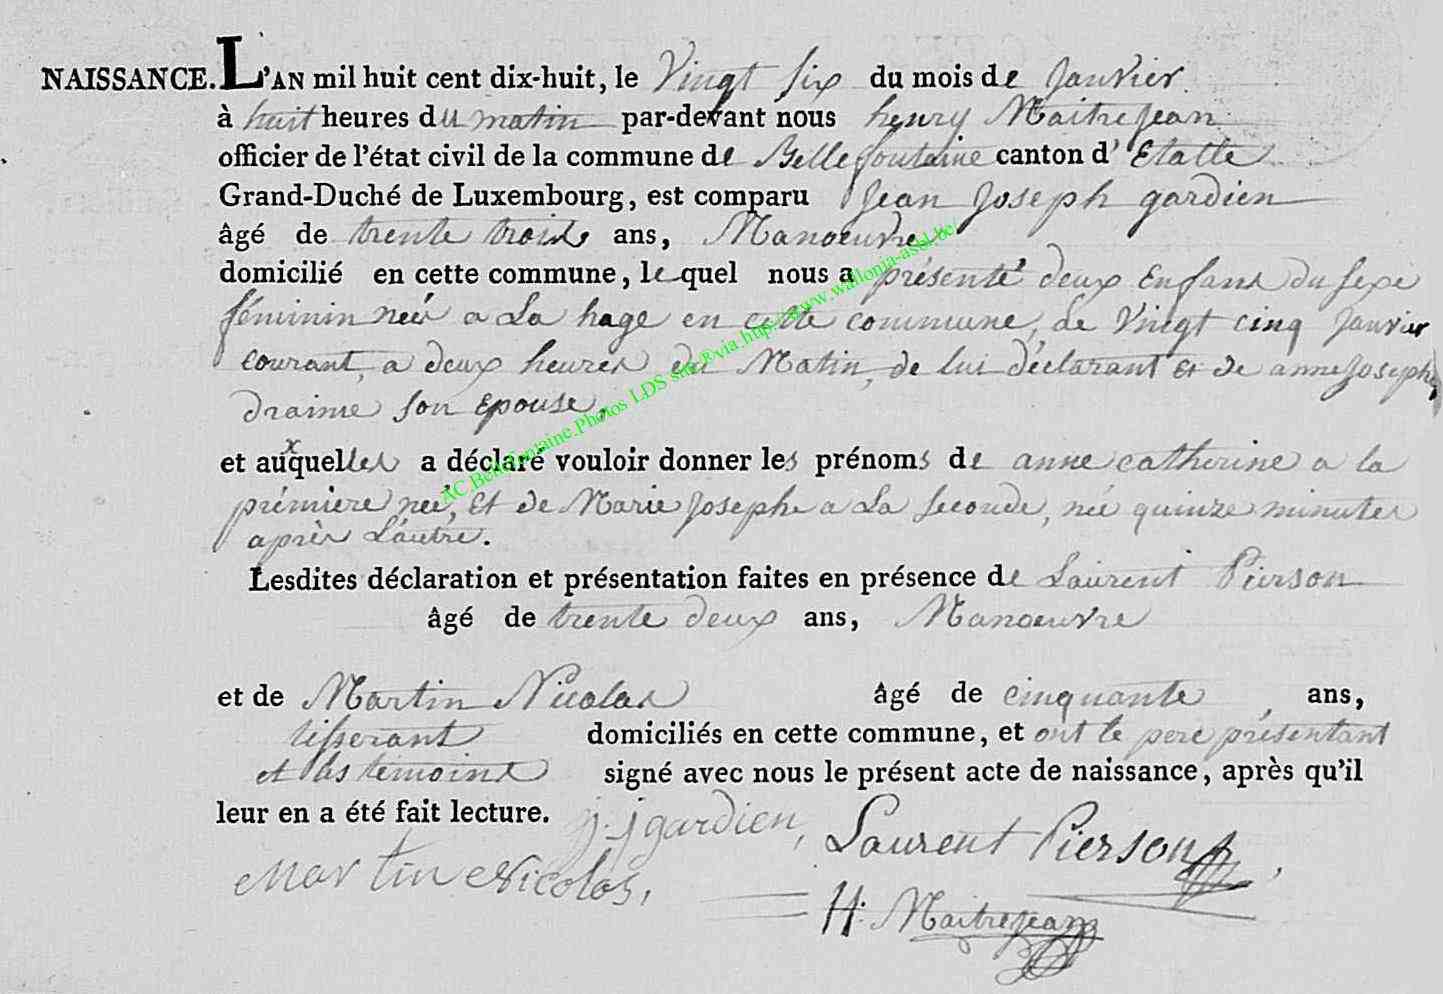 NAISSANCE. L'AN mil huit cent dix-huit, le Vingt six du mois de Janvier
à huit heures du matin par-devant nous henry Maitrejean
officier de l'état civil de la commune de Bellefontaine canton d'Etalle
Grand-Duché de Luxembourg, est comparu Jean Joseph gardien
âgé de trente trois ans, Manoeuvre
domicilié en cette commune, lequel nous a présenté deux Enfans du sexe
féminin neés a La hage en cette commune, le Vingt cinq Janvier
courant, a deux heures du Matin, de lui déclarant et de anne Joseph
draime son Epouse,
et auxquelles a déclaré vouloir donner les prénoms de anne catherine a la
prémiere neé, Et de Marie Josephe a La seconde, née quinze minutes
après L'autre.
Lesdites déclaration et présentation faites en présence de Laurent Pierson
âgé de trente deux ans, Manoeuvre
et de Martin Nicolas âgé de cinquante, ans,
tisserant domiciliés en cette commune, et ont le pere présentant
et les témoins signé avec nous le présent acte de naissance, après qu'il
leur en a été fait lecture. j. j gardien, Laurent Pierson,
Martin Nicolas,
H. Maitrejean
AC Bellefontaine Photos LDS via http://www.wallonia-asbl.be/